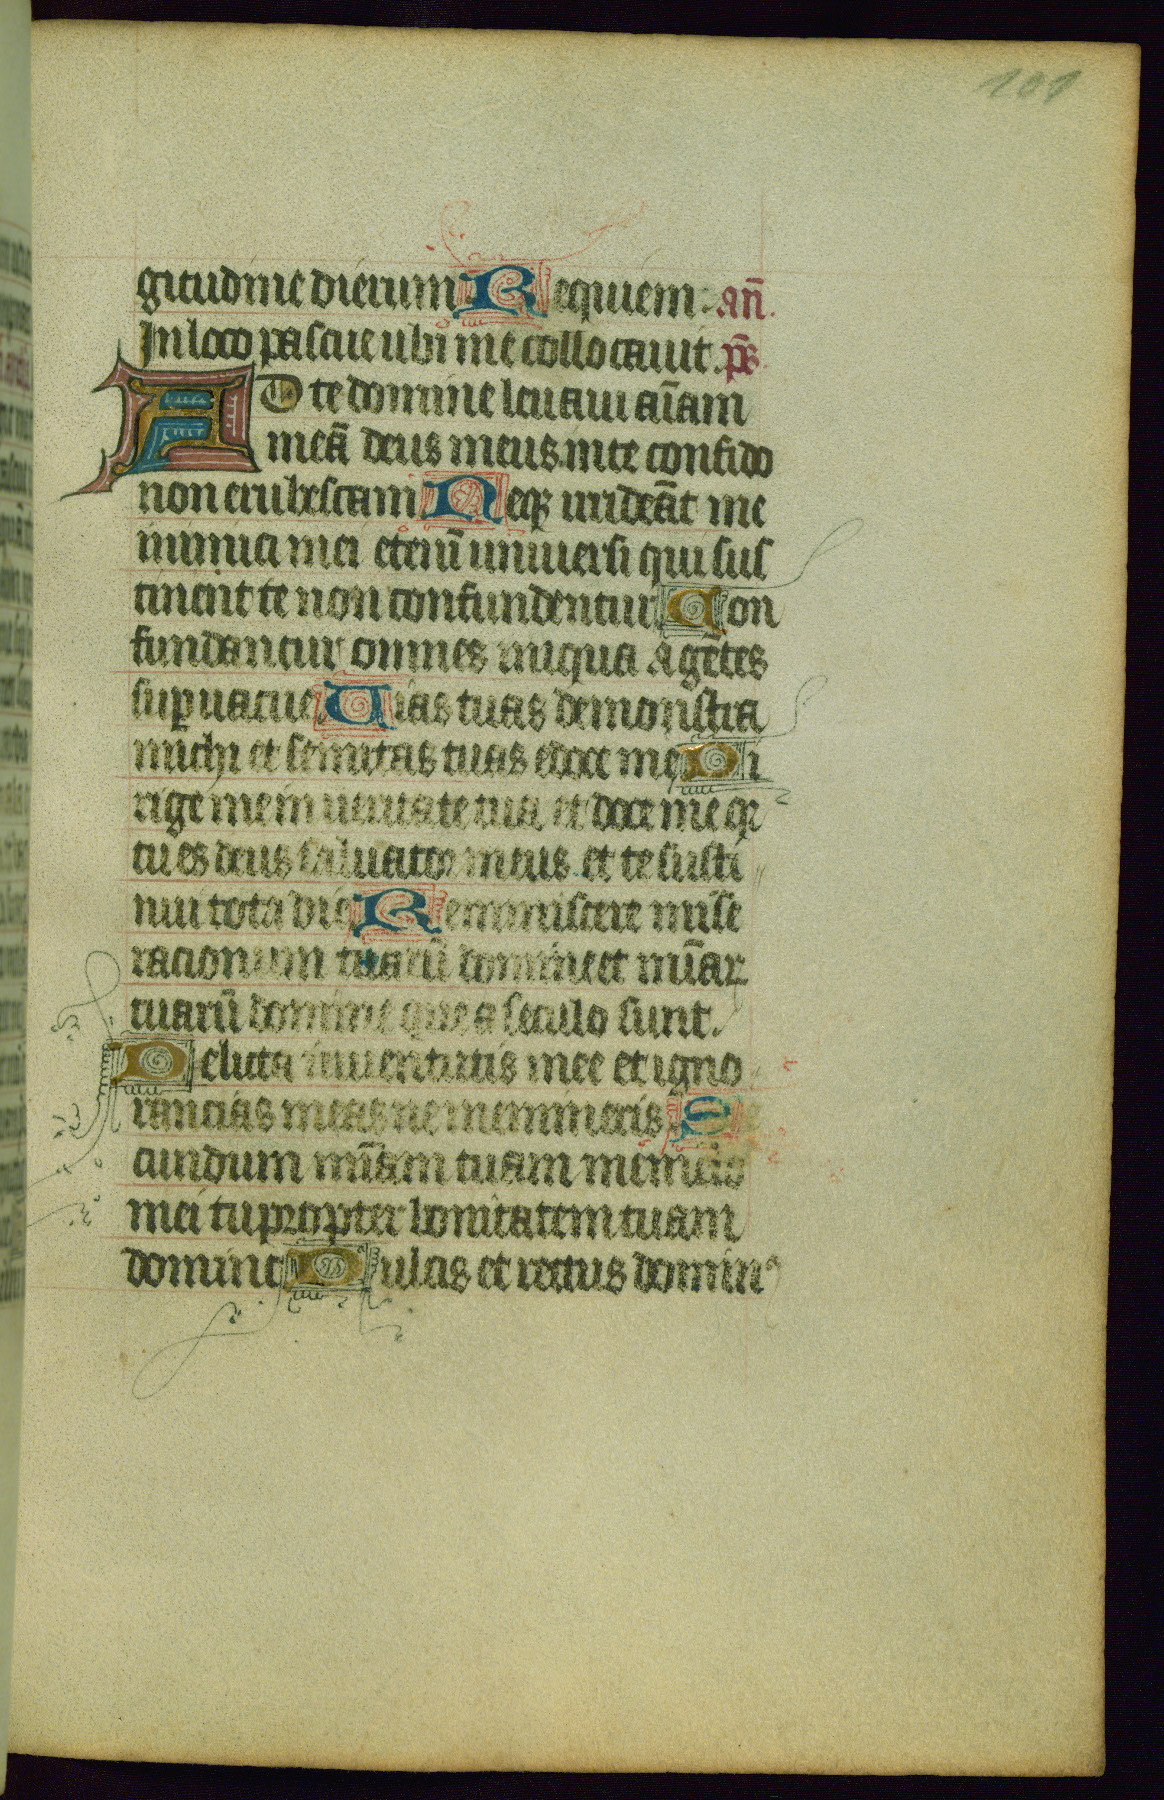 101
gitudine dierum Requiem. an̄.
In loco pascue ubi me collocauit. p̄s.
AD te domine leuaui aīam
meā deus meus in te confido
non erubescam Neqꝫ irrideāt me
inimici mei etenī uniuersi qui sus
tinēnt te non confundentur Con
fundantur omnes iniqua agētes
suꝑuacue Uias tuas demonstra
michi et semitas tuas edoce me Di
rige me in ueritate tua et doce me qꝫ
tu es deus saluator meus et te susti
nui tota die Reminiscere mise
racionum tuarū domine et mīaꝝ
tuarū domine que a seculo sunt.
Delicta iuuentutis mee et igno
rancias meas ne memineris Se
cundum mīam tuam memēto
mei tu propter bonitatem tuam
domine Dulcis et rectus dominꝰ